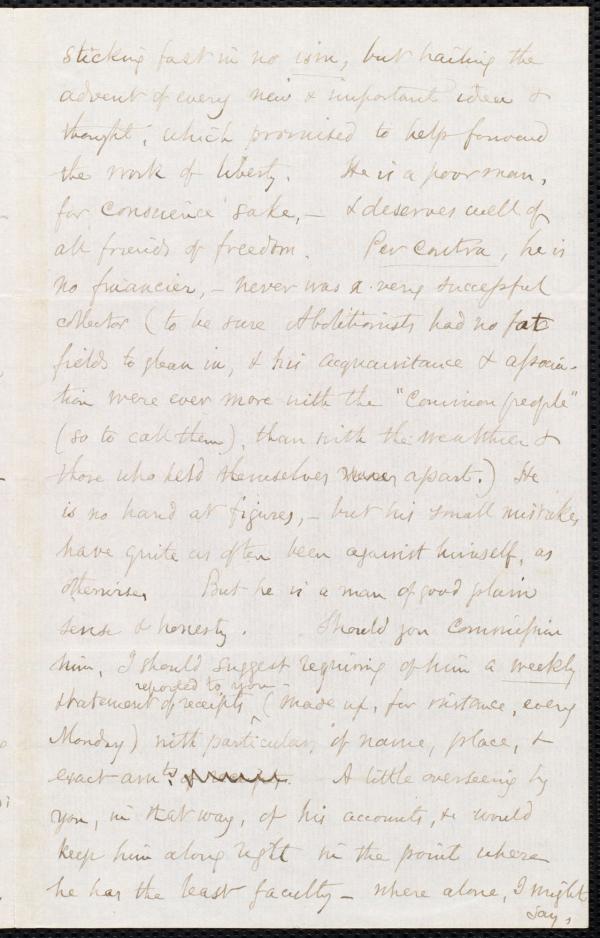 sticking fast in no ism, but hailing the
advent of every new & important idea &
thought, which promised to help forward
the work of liberty. He is a poor man,
for conscience' sake, – & deserves well of
all friends of freedom. Per contra, he is
no financier, – never was a very successful
collector (to be sure Abolitionists had no fat
fields to glean in, & his acquaintance & associa-
tion were ever more with the "Common people"
(so to call them), than with the wealthier &
those who held themselves apart.) He
is no hand at figures, – but his small mistakes
have quite as often been against himself, as
otherwise. But he is a man of good plain
sense & honesty. Should you commission
him, I should suggest requiring of him a weekly
reported to you –
statement of receipts (made up, for instance, every
Monday) with particulars of name, place, &
exact amts. A little overseeing by
you, in that way, of his accounts, &c would
keep him along right in the point where
he has the least faculty – where alone, I might
say,